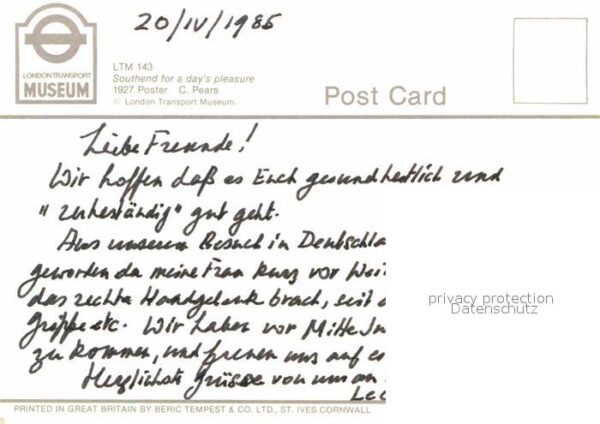 20/IV/1985
LONDON TRANSPORT
MUSEUM
LTM 143
Southend for a day's pleasure
1927 Poster C. Pears
© London Transport Museum.
Post Card
Liebe Freunde!
Wir hoffen daß es Euch gesundheitlich und
" " gut geht.
Aus unserem Besuch in Deutschla
geworden da meine Frau kurz vor Wei
das rechte Handgelenk brach, seit
Grippe etc. Wir haben vor Mitte Ju
zu kommen, und freuen uns auf
Herzlichste Grüsse von uns an
privacy protection
Datenschutz
PRINTED IN GREAT BRITAIN BY BERIC TEMPEST & CO. LTD., ST. IVES CORNWALL